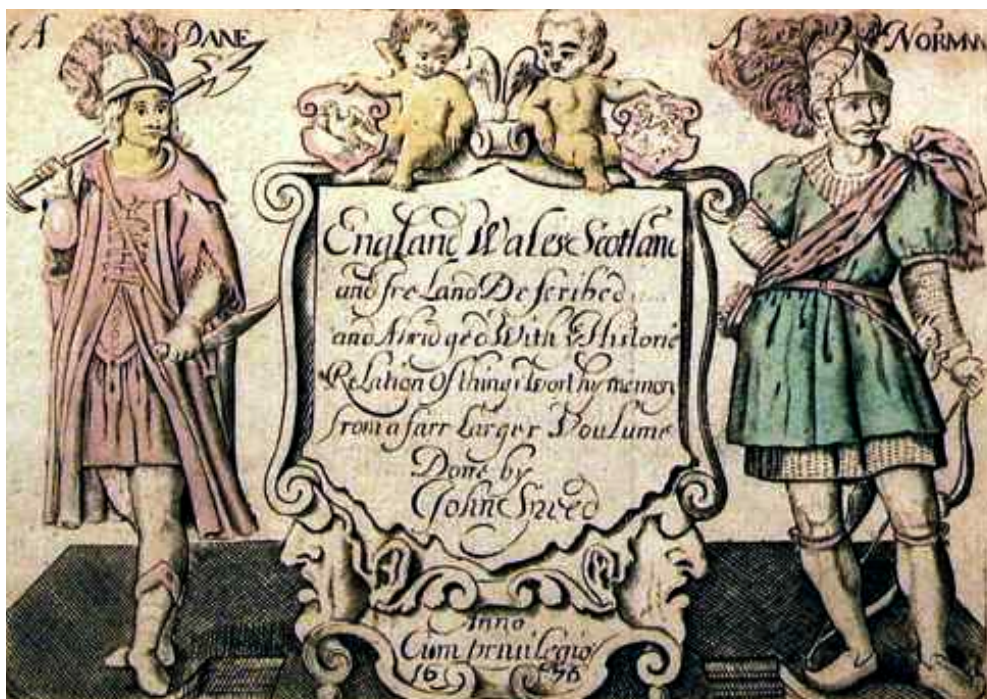 A DANE
A NORMAN
England Wales Scotland
and Ireland Described
and Abridged With y Historic
Relation of things worthy memory
from a farr larger Voulume
Done by
John Speed
Anno
Cum privilegio
16